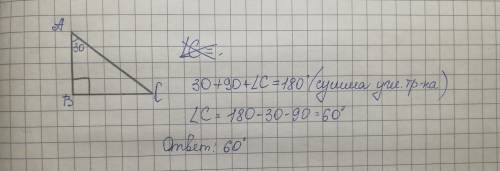 A
30
B
C
∠C =.
30+90+∠C=180° (сумма угл. тр-ка)
∠C = 180-30-90=60°
Ответ: 60°